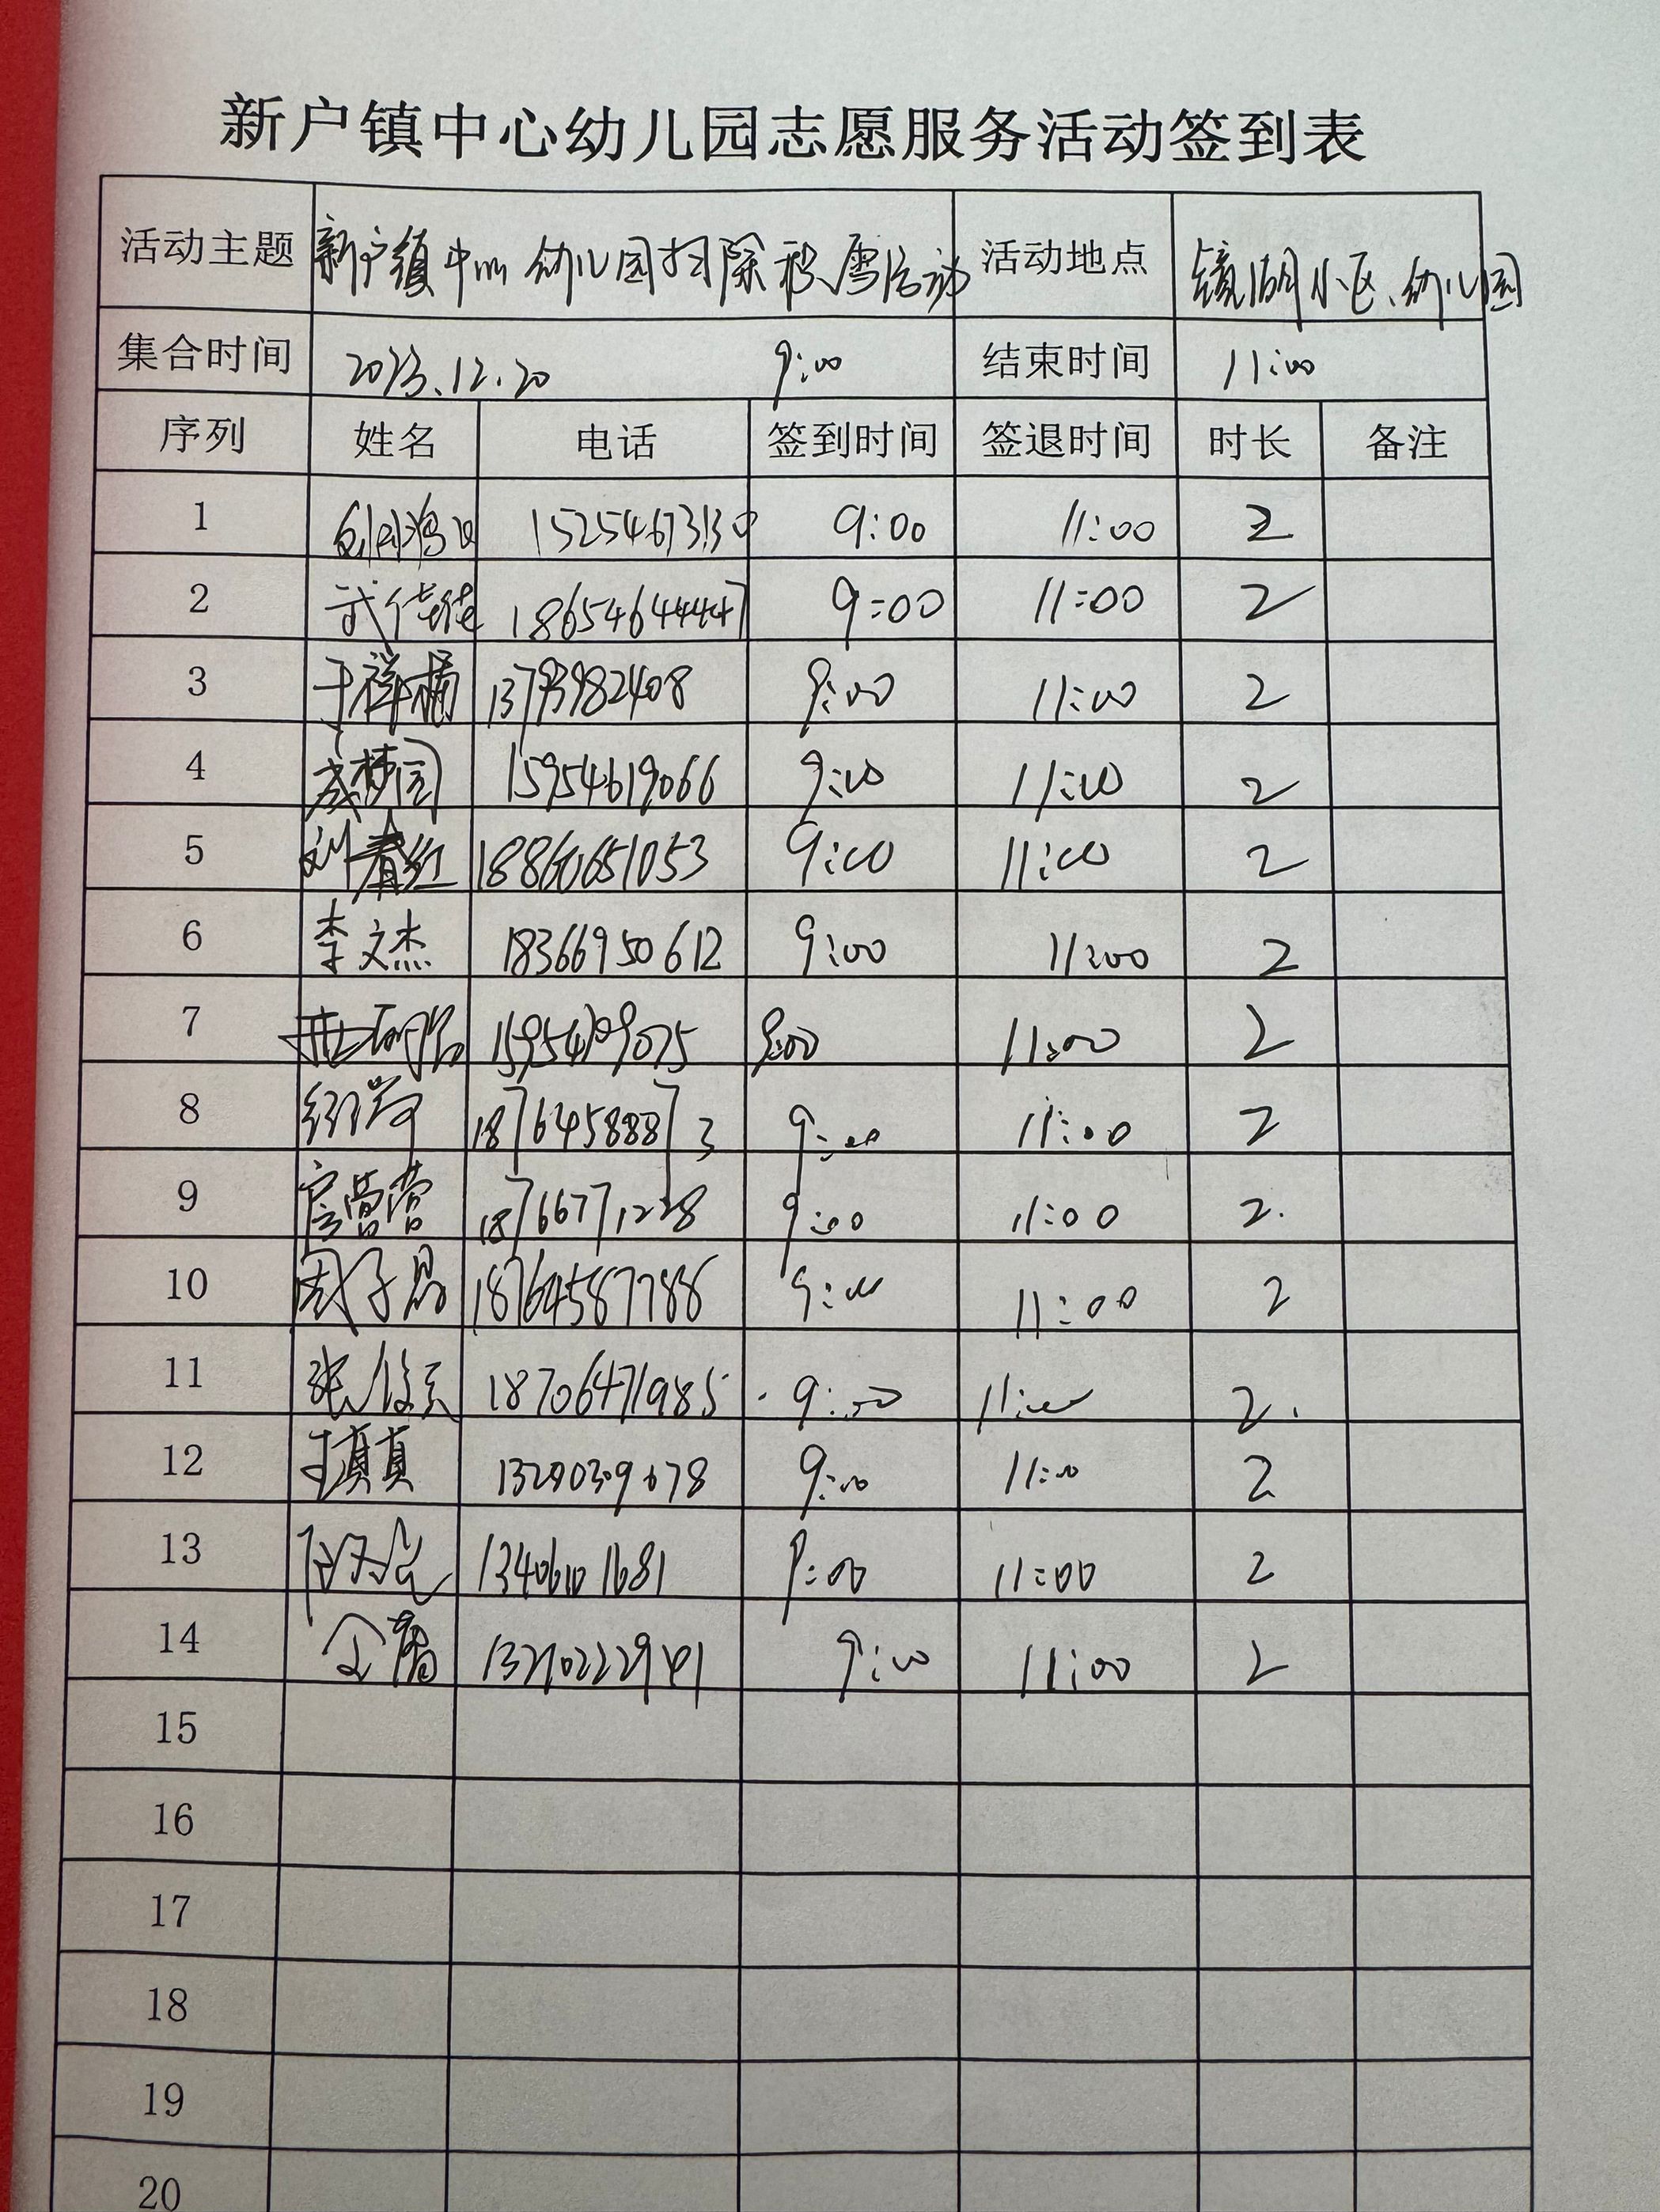 新户镇中心幼儿园志愿服务活动签到表
活动主题 新户镇中心幼儿园扫除积雪活动 活动地点 镜湖小区、幼儿园
集合时间 2023.12.20 9:00 结束时间 11:00
序列 姓名 电话 签到时间 签退时间 时长 备注
1 15254673130 9:00 11:00 2
2 武佳佳 18654644447 9:00 11:00 2
3 于祥楠 13793982408 9:00 11:00 2
4 成梦园 15954619066 9:00 11:00 2
5 刘春红 18860651053 9:00 11:00 2
6 李文杰 18366950612 9:00 11:00 2
7 9:00 11:00 2
8 18764588873 9:00 11:00 2
9 扈营营 18766771228 9:00 11:00 2.
10 周子易 18764587788 9:00 11:00 2
11 18706471985 9:00 11:00 2.
12 13290309678 9:00 11:00 2
13 13406101681 9:00 11:00 2
14 13210222941 9:00 11:00 2
15
16
17
18
19
20